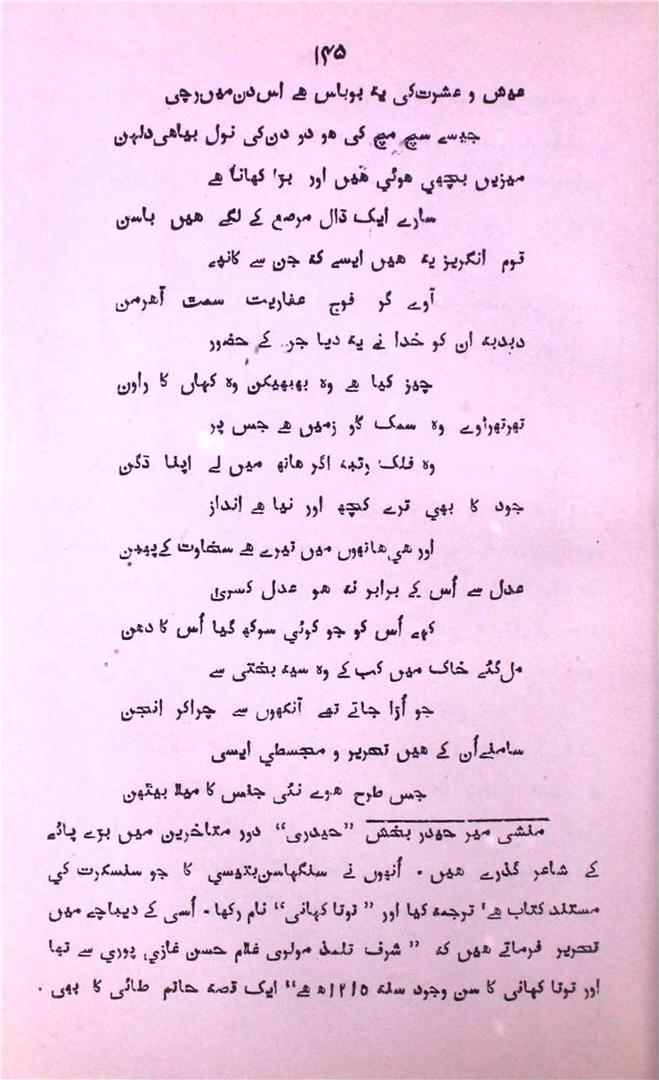 ۱۴۵
عیش و عشرت کی یہ بو باس ہے اس دن میں رچی
جیسے سچ مچ کی ہو دو دن کی نول بیاہی دلہن
میزیں بچھی ہوئی ہیں اور بڑا کھانا ہے
سارے ایک ڈال مرصع کے لگے ہیں باسن
قوم انگریز یہ ہیں ایسے کہ جن سے کانپے
آوے گر فوج عفاریت سمت آہرمن
دبدبہ ان کو خدا نے یہ دیا جن کے حضور
چیز کیا ہے وہ بھبھیکن وہ کہاں کا راون
تھرتھراوے وہ سمک گاو زمیں ہے جس پر
وہ فلک رتبہ اگر ہاتھ میں لے اپنا دگن
جود کا بھی ترے کچھ اور نیا ہے انداز
اور ہی ہاتھوں میں تیرے ہے سخاوت کے پھبن
عدل سے اُس کے برابر نہ ہو عدل کسریٰ
کہے اُس کو جو کوئی سوکھ گیا اُس کا دھن
مل گئے خاک میں کب کے وہ سیہ بختی سے
جو اُڑا جاتے تھے آنکھوں سے چراکر انجن
سامنے اُن کے ہیں تحریر و مجسطی ایسی
جس طرح ہوے نئی جنس کا میلا بیٹھن
منشی میر حیدر بخش ”حیدری“ دور متاخرین میں بڑے پائے
کے شاعر گذرے ہیں ۔ اُنہوں نے سنگھاسن بتیسی کا جو سنسکرت کی
مستند کتاب ہے' ترجمہ کیا اور ” توتا کہانی“ نام رکھا ۔ اُسی کے دیباچے میں
تحریر فرماتے ہیں کہ ” شرف تلمذ مولوی غلام حسن غازی پوری سے تھا
اور توتا کہانی کا سن وجود سنہ ۱۲۱۵ھ ہے“ ایک قصہ حاتم طائی کا بھی ۔